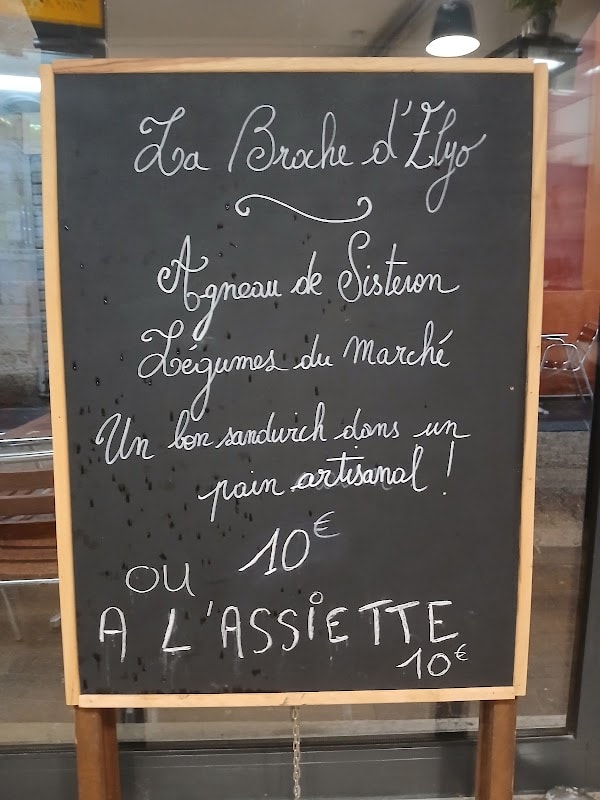 La Broche d'Elyo
Agneau de Sisteron
Légumes du Marché
Un bon sandwich dans un
pain artisanal !
10€
OU
A L'ASSIETTE
10€